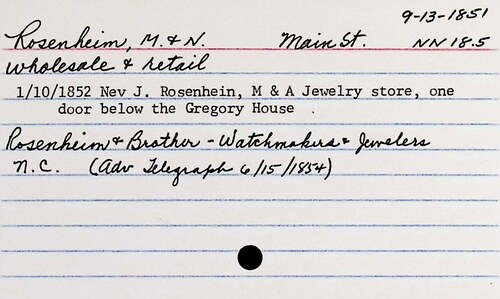 9-13-1851
Rosenheim, M. & N. Main St. NN 18.5
wholesale & retail
1/10/1852 Nev J. Rosenhein, M & A Jewelry store, one
door below the Gregory House .
Rosenheim & Brother - Watchmakers & Jewelers
N.C. (Adv Telegraph 6/15/1854)